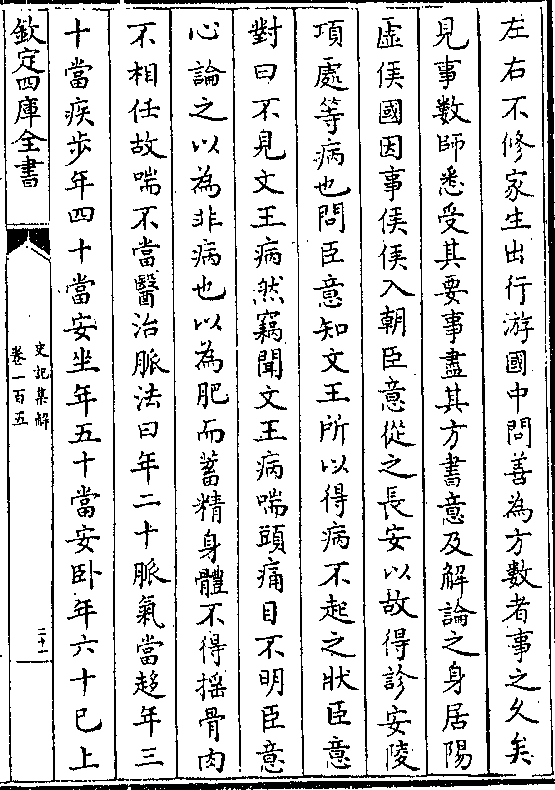 左右不修家生出行游國中問善為方數者事之久矣
見事數師悉受其要事盡其方書意及解論之身居陽
虛侯國因事侯侯入朝臣意從之長安以故得診安陵
項處等病也問臣意知文王所以得病不起之狀臣意
對曰不見文王病然竊聞文王病喘頭痛目不明臣意
心論之以為非病也以為肥而蓄精身體不得揺骨肉
不相任故喘不當醫治脈法曰年二十脈氣當趍年三
十當疾步年四十當安坐年五十當安卧年六十已上
欽定四庫全書
史記集解
卷一百五
二十一